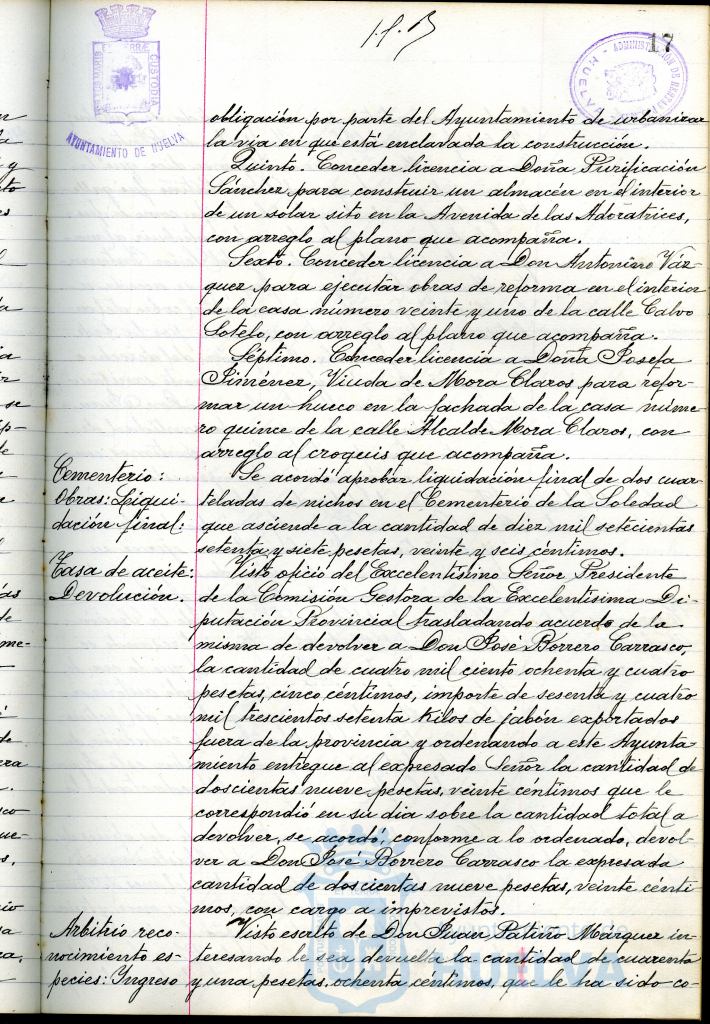 17
ADMINISTRACION DE RENTAS
HUELVA
SANCTA MARIA
CUSTODIA
AYUNTAMIENTO DE HUELVA
obligación por parte del Ayuntamiento de urbanizar
la via en que está enclavada la construcción.
Quinto. Conceder licencia a Doña Purificación
Sánchez para construir un almacén en el interior
de un solar sito en la Avenida de las Adoratrices,
con arreglo al plano que acompaña.
Sexto. Conceder licencia a Don Antonino Váz-
quez para ejecutar obras de reforma en el interior
de la casa número veinte y uno de la calle Calvo
Sotelo, con arreglo al plano que acompaña.
Séptimo. Conceder licencia a Doña Josefa
Jiménez, Viuda de Mora Claros para refor-
mar un hueco en la fachada de la casa núme-
ro quince de la calle Alcalde Mora Claros, con
arreglo al croquis que acompaña.
Cementerio:
Obras: Liqui-
dación final:
Se acordó aprobar liquidación final de dos cuar-
teladas de nichos en el Cementerio de la Soledad
que asciende a la cantidad de diez mil setecientas
setenta y siete pesetas, veinte y seis céntimos.
Tasa de aceite:
Devolución.
Visto oficio del Excelentísimo Señor Presidente
de la Comisión Gestora de la Excelentísima Di-
putación Provincial trasladando acuerdo de la
misma de devolver a Don José Borrero Carrasco,
la cantidad de cuatro mil ciento ochenta y cuatro
pesetas, cinco céntimos, importe de sesenta y cuatro
mil trescientos setenta kilos de jabón exportados
fuera de la provincia y ordenando a este Ayunta-
miento entregue al expresado Señor la cantidad de
doscientas nueve pesetas, veinte céntimos que le
correspondió en su dia sobre la cantidad total a
devolver, se acordó, conforme a lo ordenado, devol-
ver a Don José Borrero Carrasco la expresada
cantidad de doscientas nueve pesetas, veinte cénti-
mos, con cargo a imprevistos.
Arbitrio reco-
nocimiento es-
pecies: Ingreso
Visto escrito de Don Juan Patiño Márquez in-
teresando le sea devuelta la cantidad de cuarenta
y una pesetas, ochenta céntimos, que le ha sido co-
HUELVA